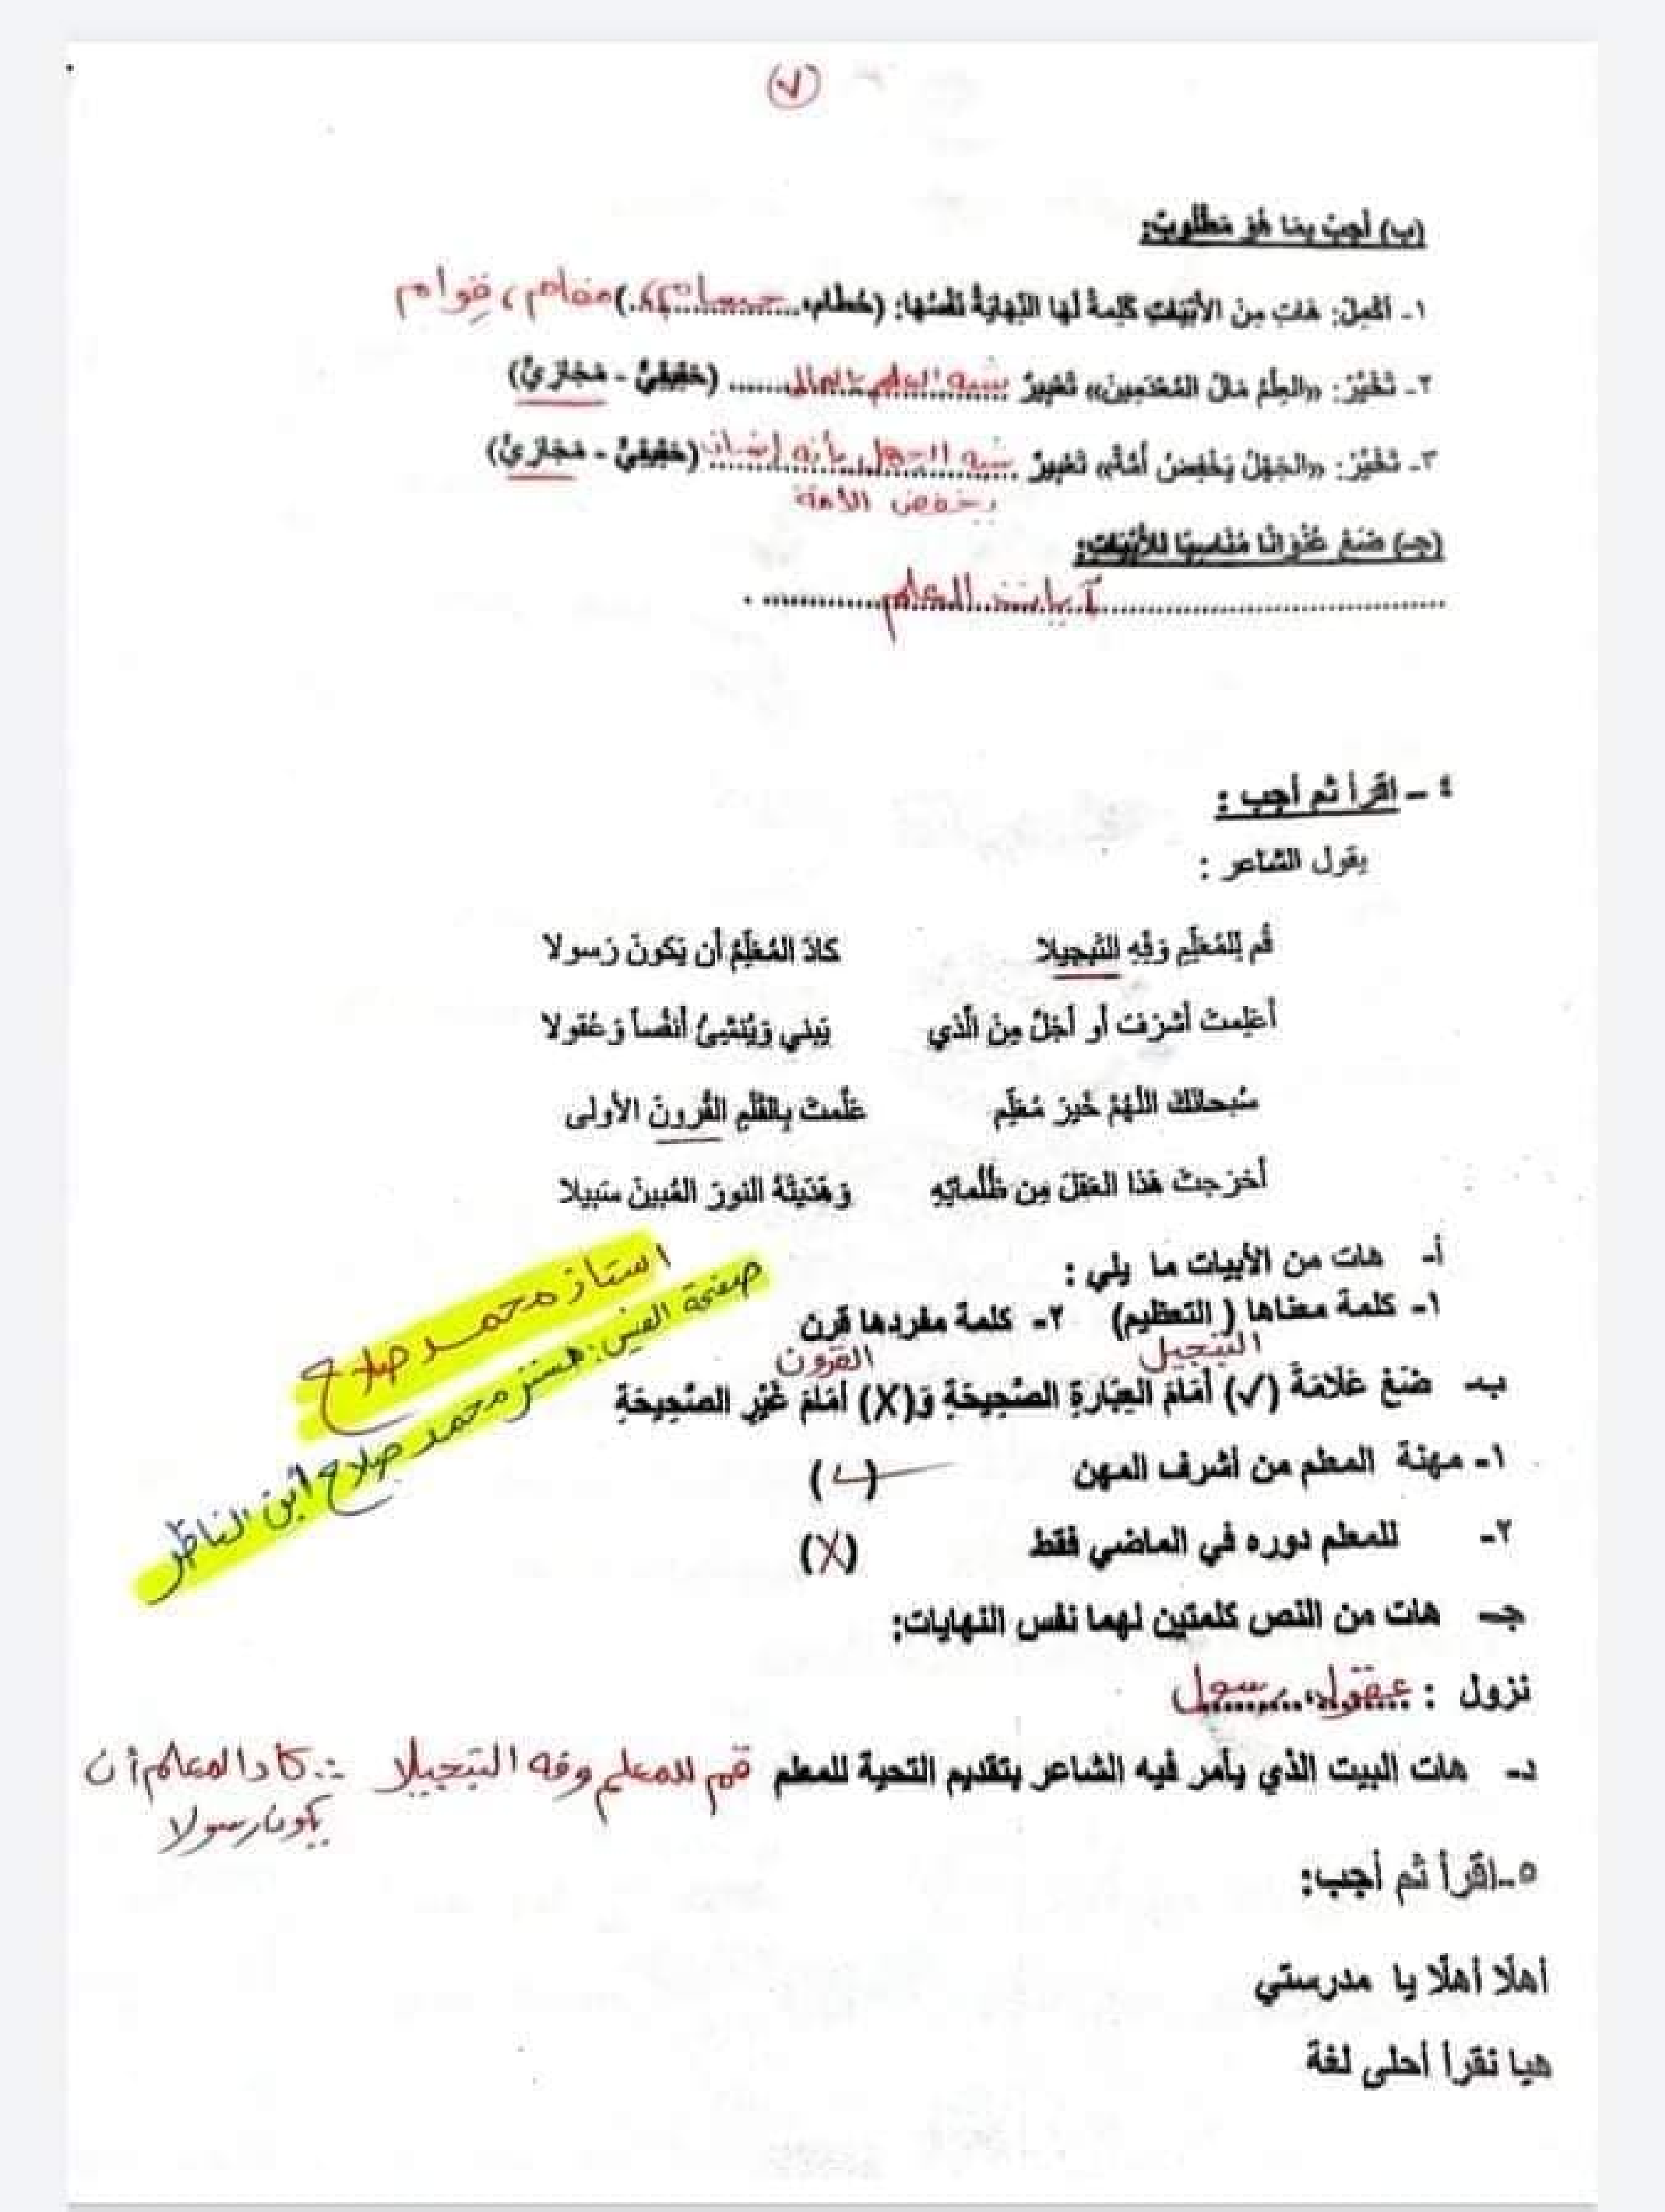 (٧)
(ب) أجِبْ بِمَا هُوَ مَطْلُوبٌ:
١- أكْمِلْ: هَاتِ مِنَ الأَبْيَاتِ كَلِمَةً لَهَا النِّهَايَةُ نَفْسُهَا: (حُطَام، حسام، ...) مقام، قوام
٢- تَخَيَّرْ: «العِلْمُ مَالُ المُعْدَمِينَ» تَعْبِيرٌ شبه العلم بالمال (حَقِيقِيٌّ - مَجَازِيٌّ)
٣- تَخَيَّرْ: «الجَهْلُ يَخْفِضُ أُمَّةً» تَعْبِيرٌ شبه الجهل بأنه إنسان (حَقِيقِيٌّ - مَجَازِيٌّ)
يخفض الأمة
(جـ) ضَعْ عُنْوَانًا مُنَاسِبًا لِلأَبْيَاتِ:
آيات العلم
٤ - اقرأ ثم أجب :
يقول الشاعر :
قُم لِلمُعَلِّمِ وَفِّهِ التَبجيلا كادَ المُعَلِّمُ أَن يَكونَ رَسولا
أَعَلِمتَ أَشرَفَ أَو أَجَلَّ مِنَ الَّذي يَبني وَيُنشِئُ أَنفُساً وَعُقولا
سُبحانَكَ اللَهُمَّ خَيرَ مُعَلِّمٍ عَلَّمتَ بِالقَلَمِ القُرونَ الأولى
أَخرَجتَ هَذا العَقلَ مِن ظُلُماتِهِ وَهَدَيتَهُ النورَ المُبينَ سَبيلا
أ- هات من الأبيات ما يلي :
١- كلمة معناها ( التعظيم) ٢- كلمة مفردها قرن
التبجيل القرون
استاذ محمد صلاح
صفحة الفيس: مستر محمد صلاح ابن الناظر
ب- ضَعْ عَلَامَةَ (✓) أَمَامَ العِبَارَةِ الصَّحِيحَةِ وَ(X) أَمَامَ غَيْرِ الصَّحِيحَةِ
١- مهنة المعلم من أشرف المهن (✓)
٢- للمعلم دوره في الماضي فقط (X)
جـ- هات من النص كلمتين لهما نفس النهايات:
نزول : عقول، رسول
د- هات البيت الذي يأمر فيه الشاعر بتقديم التحية للمعلم قم للمعلم وفه التبجيلا ∴ كاد المعلم أن
يكون رسولا
٥-اقرأ ثم أجب:
أهلًا أهلًا يا مدرستي
هيا نقرأ أحلى لغة